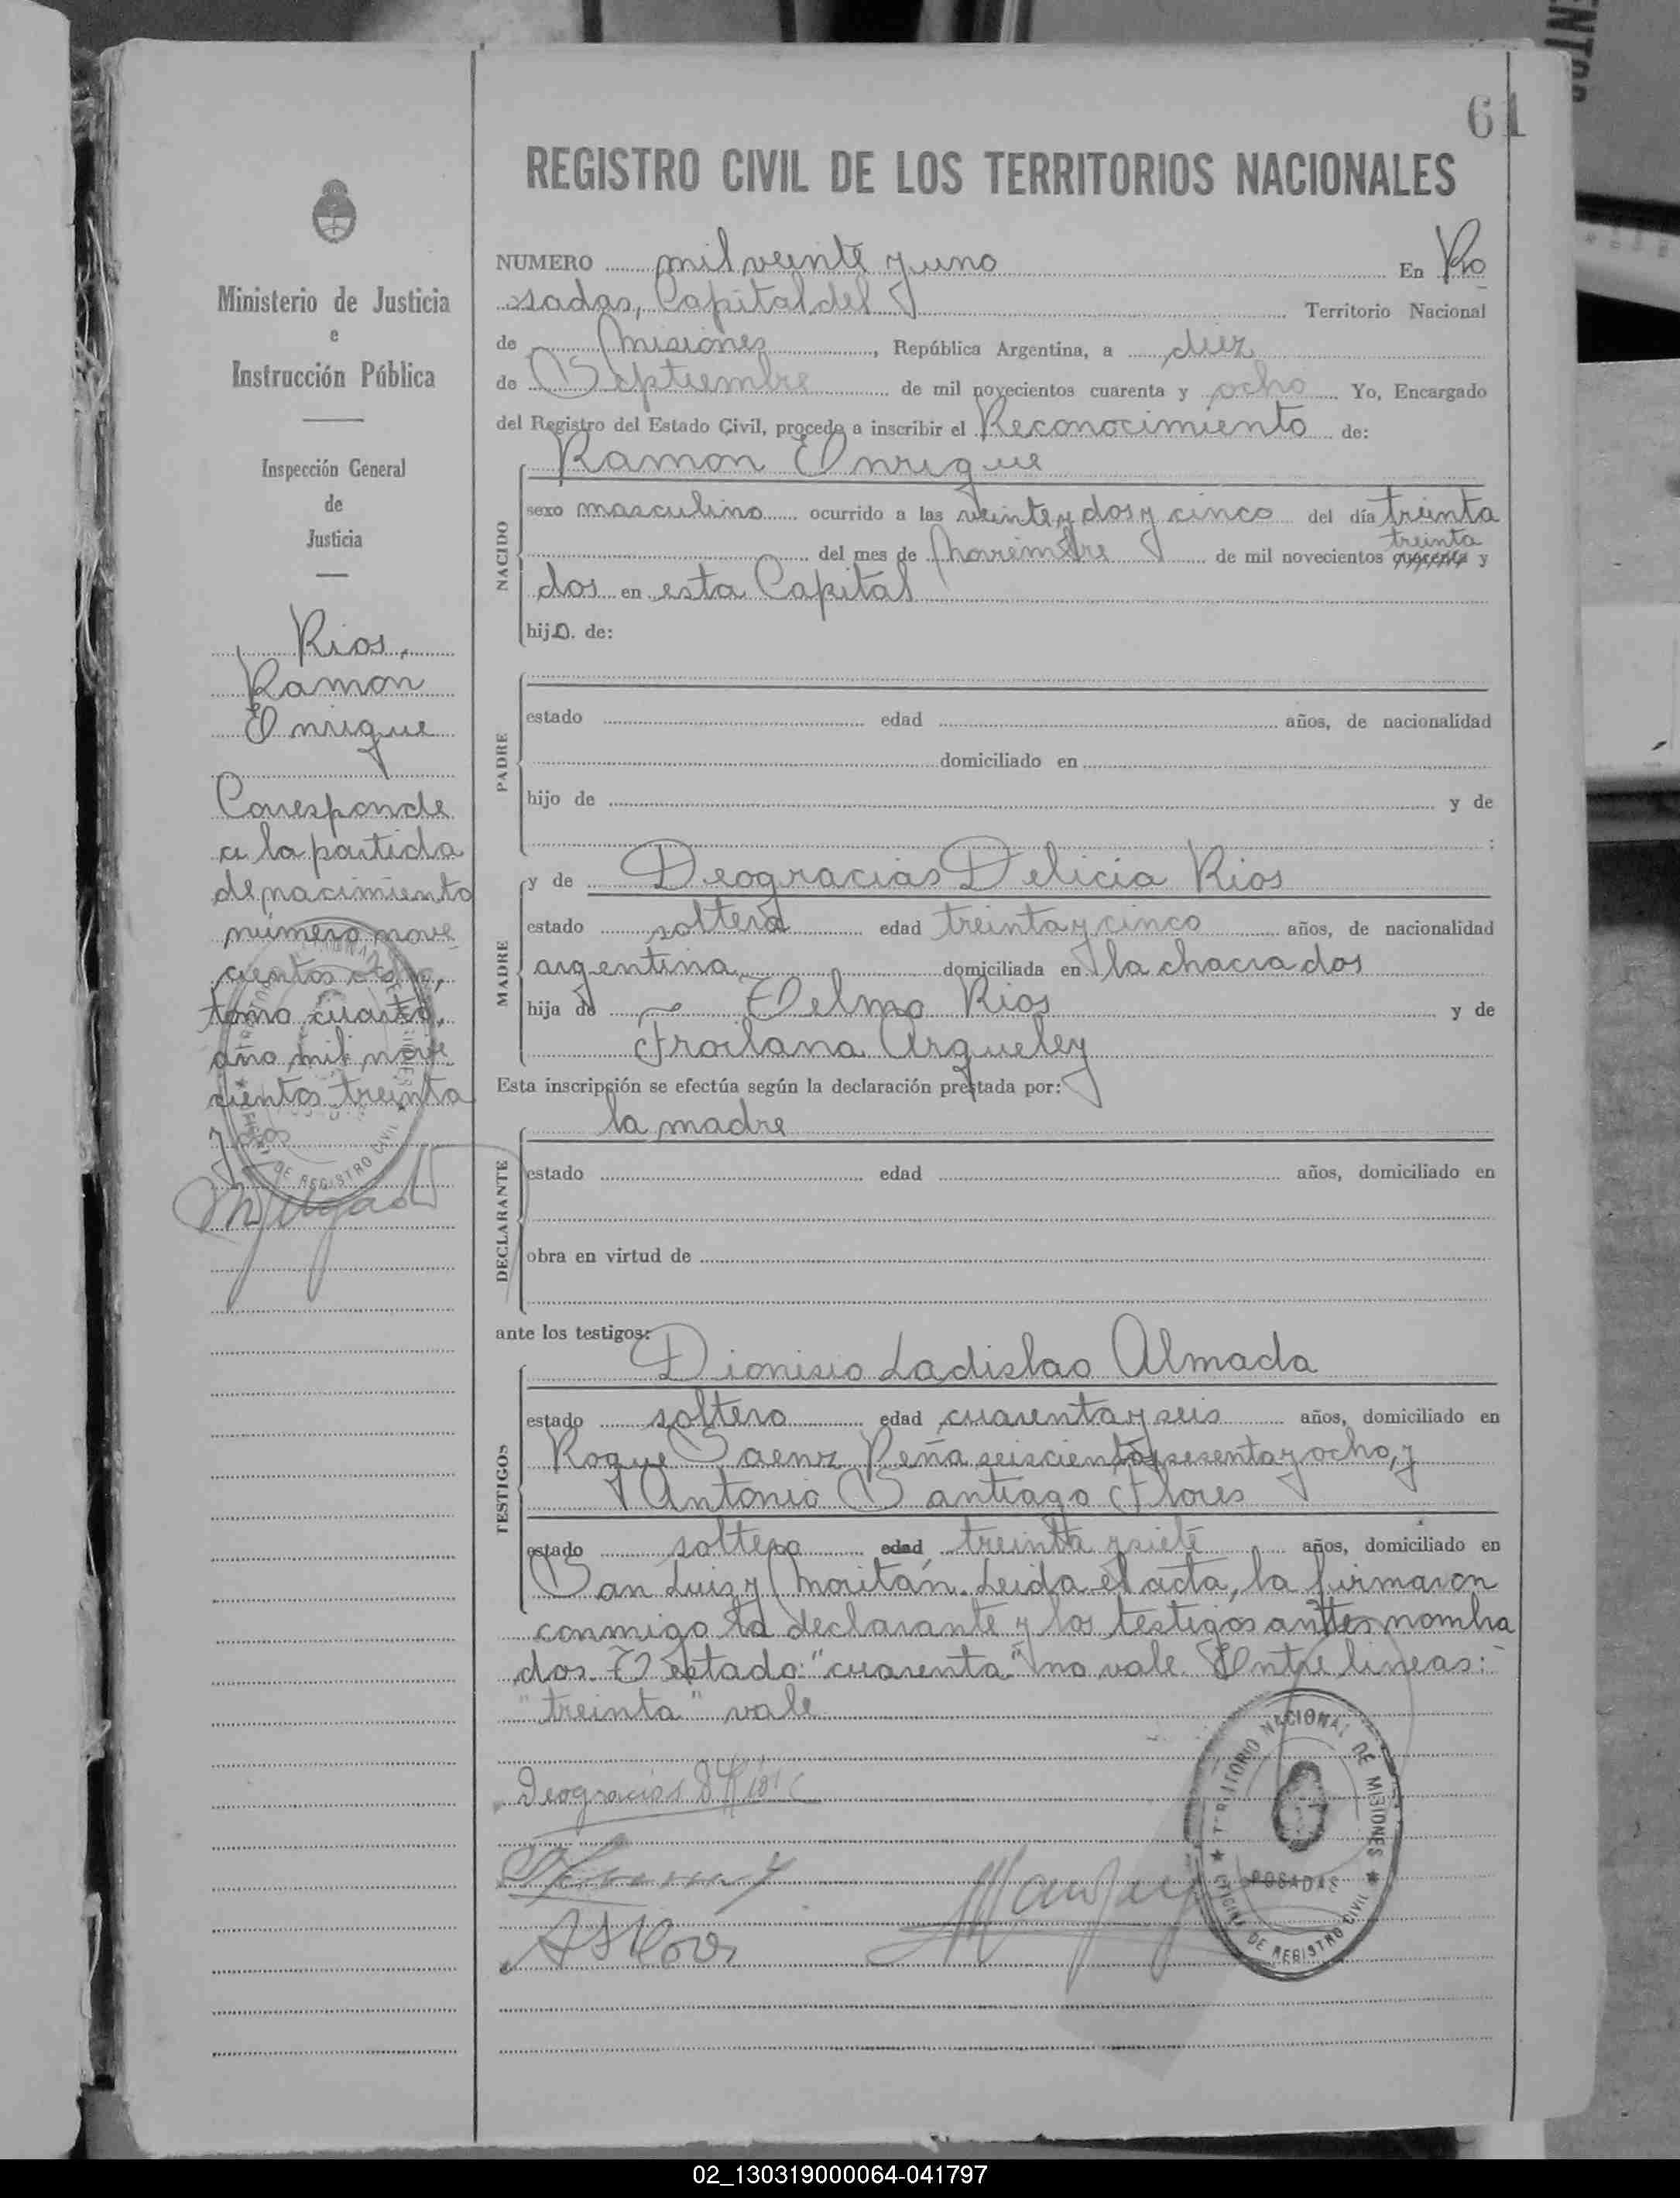 61
REGISTRO CIVIL DE LOS TERRITORIOS NACIONALES
Ministerio de Justicia
e
Instrucción Pública
Inspección General
de
Justicia
Rios,
Ramon
Enrique
Corresponde
a la partida
de nacimiento
número nove
cientos
tomo cuarto,
año mil nove
cientos treinta
y dos
NUMERO mil veinte y uno En Po
sadas, Capital del Territorio Nacional
de Misiones, República Argentina, a diez
de Septiembre de mil novecientos cuarenta y ocho Yo, Encargado
del Registro del Estado Civil, procedo a inscribir el Reconocimiento de:
Ramon Enrique
NACIDO
sexo masculino ocurrido a las veinte y dos y cinco del día treinta
treinta
del mes de Noviembre de mil novecientos cuarenta y
dos en esta Capital
hijo. de:
PADRE
estado edad años, de nacionalidad
domiciliado en
hijo de y de
;
MADRE
y de Deogracias Delicia Rios
estado soltera edad treinta y cinco años, de nacionalidad
argentina domiciliada en la chacra dos
hija de Telmo Rios y de
Froilana Arqueley
Esta inscripción se efectúa según la declaración prestada por:
la madre
DECLARANTE
estado edad años, domiciliado en
obra en virtud de
ante los testigos:
Dionisio Ladislao Almada
TESTIGOS
estado soltero edad cuarenta y seis años, domiciliado en
Roque Saenz Peña seiscientos sesenta y ocho, y
Antonio Santiago Flores
estado soltero edad treinta y siete años, domiciliado en
San Luis y Moritán. Leida el acta, la firmaron
conmigo la declarante y los testigos antes nombra
dos. Testado: "cuarenta" no vale. Entre lineas:
"treinta" vale
Deogracias D Rios
TERRITORIO NACIONAL DE MISIONES
POSADAS
OFICINA DE REGISTRO CIVIL
02_130319000064-041797